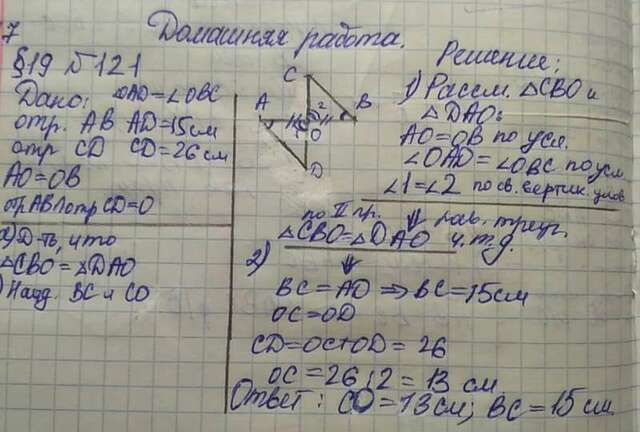 7
Домашняя работа.
§19 №121
Дано: ∠OAD=∠OBC
отр. AB AD=15см
отр CD CD=26см
AO=OB
отр AB∩отр CD=O
а) Д-ть, что
△CBO=△DAO
Найд. BC и CO
C
A
2
B
1
O
D
Решение:
1) Рассм. △CBO и
△DAO:
AO=OB по усл.
∠OAO=∠OBC по усл
∠1=∠2 по св. вертик. углов
по II пр. ⇓ рав. треуг.
△CBO=△DAO ч.т.д.
2) ⇓
BC=AD ⇒ BC=15см
OC=OD
CD=OC+OD=26
OC=26:2=13 см
Ответ: CO=13см; BC=15см